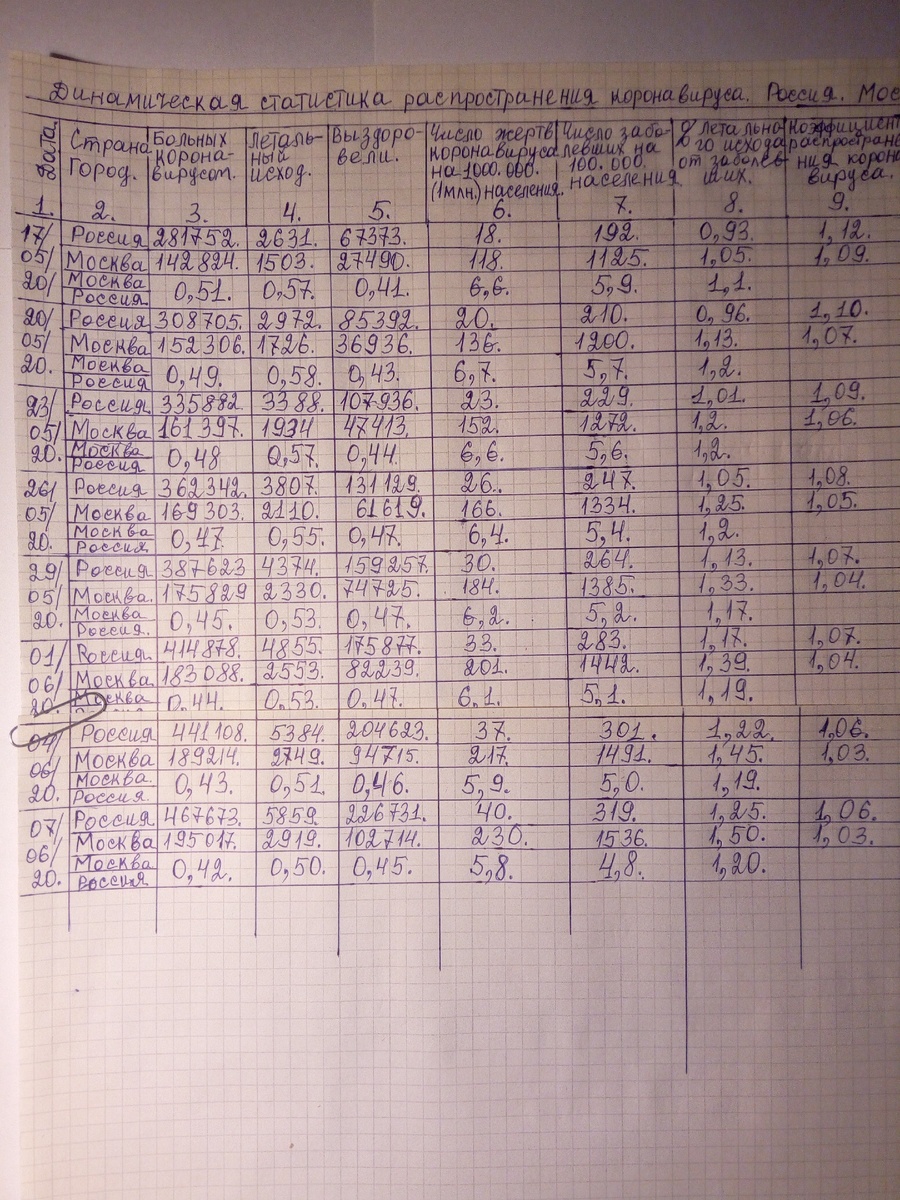 Динамическая статистика распространения коронавируса. Россия. Мос
Дата
Страна Город.
Больных корона- вирусом.
Леталь- ный исход.
Выздоро- вели.
Число жертв коронавируса на 1000.000. (1 млн.) населения.
Число забо- левших на 100.000. населения
% летально- го исхода от заболев- ших.
Коэффициент распростране ния корона вируса.
1. 2. 3. 4. 5. 6. 7. 8. 9.
17/ Россия 281752. 2631. 67373. 18. 192. 0,93. 1,12.
05/ Москва 142824. 1503. 27490. 118. 1125. 1,05. 1,09.
20/ Москва Россия 0,51. 0,57. 0,41. 6,6. 5,9. 1,1.
20/ Россия 308705. 2972. 85392. 20. 210. 0,96. 1,10.
05/ Москва 152306. 1726. 36936. 136. 1200. 1,13. 1,07.
20. Москва Россия 0,49. 0,58. 0,43. 6,7. 5,7. 1,2.
23/ Россия 335882. 3388. 107936. 23. 229. 1,01. 1,09.
05/ Москва 161397. 1934 47413. 152. 1272. 1,2. 1,06.
20. Москва Россия 0,48 0,57. 0,44. 6,6. 5,6. 1,2.
26/ Россия 362342. 3807. 131129. 26. 247. 1,05. 1,08.
05/ Москва 169303. 2110. 61619. 166. 1334. 1,25. 1,05.
20. Москва Россия 0,47. 0,55. 0,47. 6,4. 5,4. 1,2.
29/ Россия 387623 4374. 159257. 30. 264. 1,13. 1,07.
05/ Москва. 175829 2330. 74725. 184. 1385. 1,33. 1,04.
20. Москва Россия. 0,45. 0,53. 0,47. 6,2. 5,2. 1,17.
01/ Россия. 414878. 4855. 175877. 33. 283. 1,17. 1,07.
06/ Москва 183088. 2553. 82239. 201. 1442. 1,39. 1,04.
20. Москва 0,44. 0,53. 0,47. 6,1. 5,1. 1,19.
04/ Россия 441108. 5384. 204623. 37. 301. 1,22. 1,06.
06/ Москва 189214. 2749. 94715. 217. 1491. 1,45. 1,03.
20. Москва. Россия 0,43. 0,51. 0,46. 5,9. 5,0. 1,19.
07/ Россия 467673. 5859. 226731. 40. 319. 1,25. 1,06.
06/ Москва 195017. 2919. 102714. 230. 1536. 1,50. 1,03.
20. Москва Россия 0,42. 0,50. 0,45. 5,8. 4,8. 1,20.